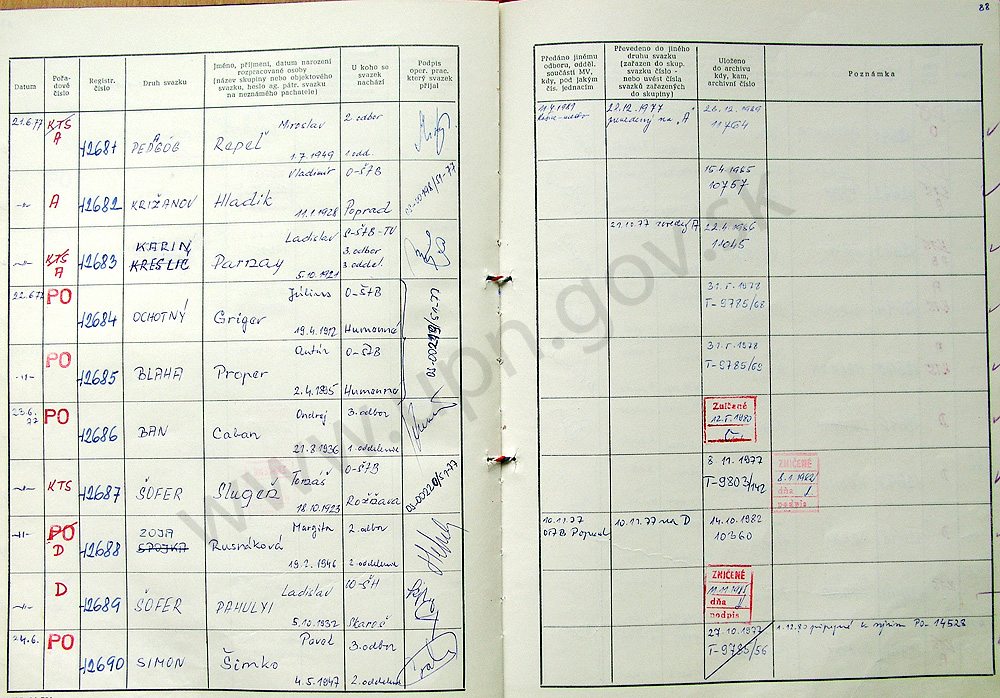 88
Datum
Pořadové číslo
Registr. číslo
Druh svazku
Jméno, příjmení, datum narození rozpracované osoby (název skupiny nebo objektového svazku, heslo ag. pátr. svazku na neznámého pachatele)
U koho se svazek nachází
Podpis oper. prac. který svazek přijal
Předáno jinému odboru, odděl. součásti MV, kdy, pod jakým čís. jednacím
Převedeno do jiného druhu svazku (zařazen do skup. svazku číslo - nebo uvést čísla svazků zařazených do skupiny)
Uloženo do archivu kdy, kam, archivní číslo
Poznámka
21.6.77 KTS A 12681 PEDAGÓG Repeľ Miroslav 1.7.1949 2. odbor 1. odd.
11.4.1989
28.12.1977 prevedený na "A"
11764
A 12682 KRIŽANOV Hladik Vladimír 11.1.1928 O-ŠTB Poprad
15.4.1985
10757
KTS A 12683 KARIN KRESLIC Parzay Ladislav 5.10.1921 3. odbor 3 oddel.
22.4.1986
11045
22.6.77 PO 12684 OCHOTNÝ Griger Július 19.4.1912 O-ŠTB Humenné
31.5.1978
T-9785/68
-"- PO 12685 BLAHA Proper 2.4.1895 O-ŠTB Humenné
31.5.1978
T-9785/69
23.6.77 PO 12686 BAN Caban Ondrej 21.8.1936 3. odbor 1. oddelenie
Zničené
12.5.1980
KTS 12687 ŠOFER Slugeň Tomáš 18.10.1923 O-ŠTB Rožňava
03-00220/51-77
8 11.1977
T-9803/142
ZNIČENÉ
8.1.1982
dňa
podpis
-"- PO D 12688 ZOJA SPOJKA Rusnáková Margita 19.2.1946 2. odbor 2. oddelenie
10.11.77
OŠTB Poprad
10.11.77 na D
14.10.1982
10360
D 12689 ŠOFER PAHULYI Ladislav 5.10.1932
ZNIČENÉ
dňa
podpis
24.6. PO 12690 SIMON Šimko Pavel 4.5.1947 3. odbor 2. oddelenie
27.10.1977
T-9785/56
1.12.80 PO-14528
www.upn.gov.sk